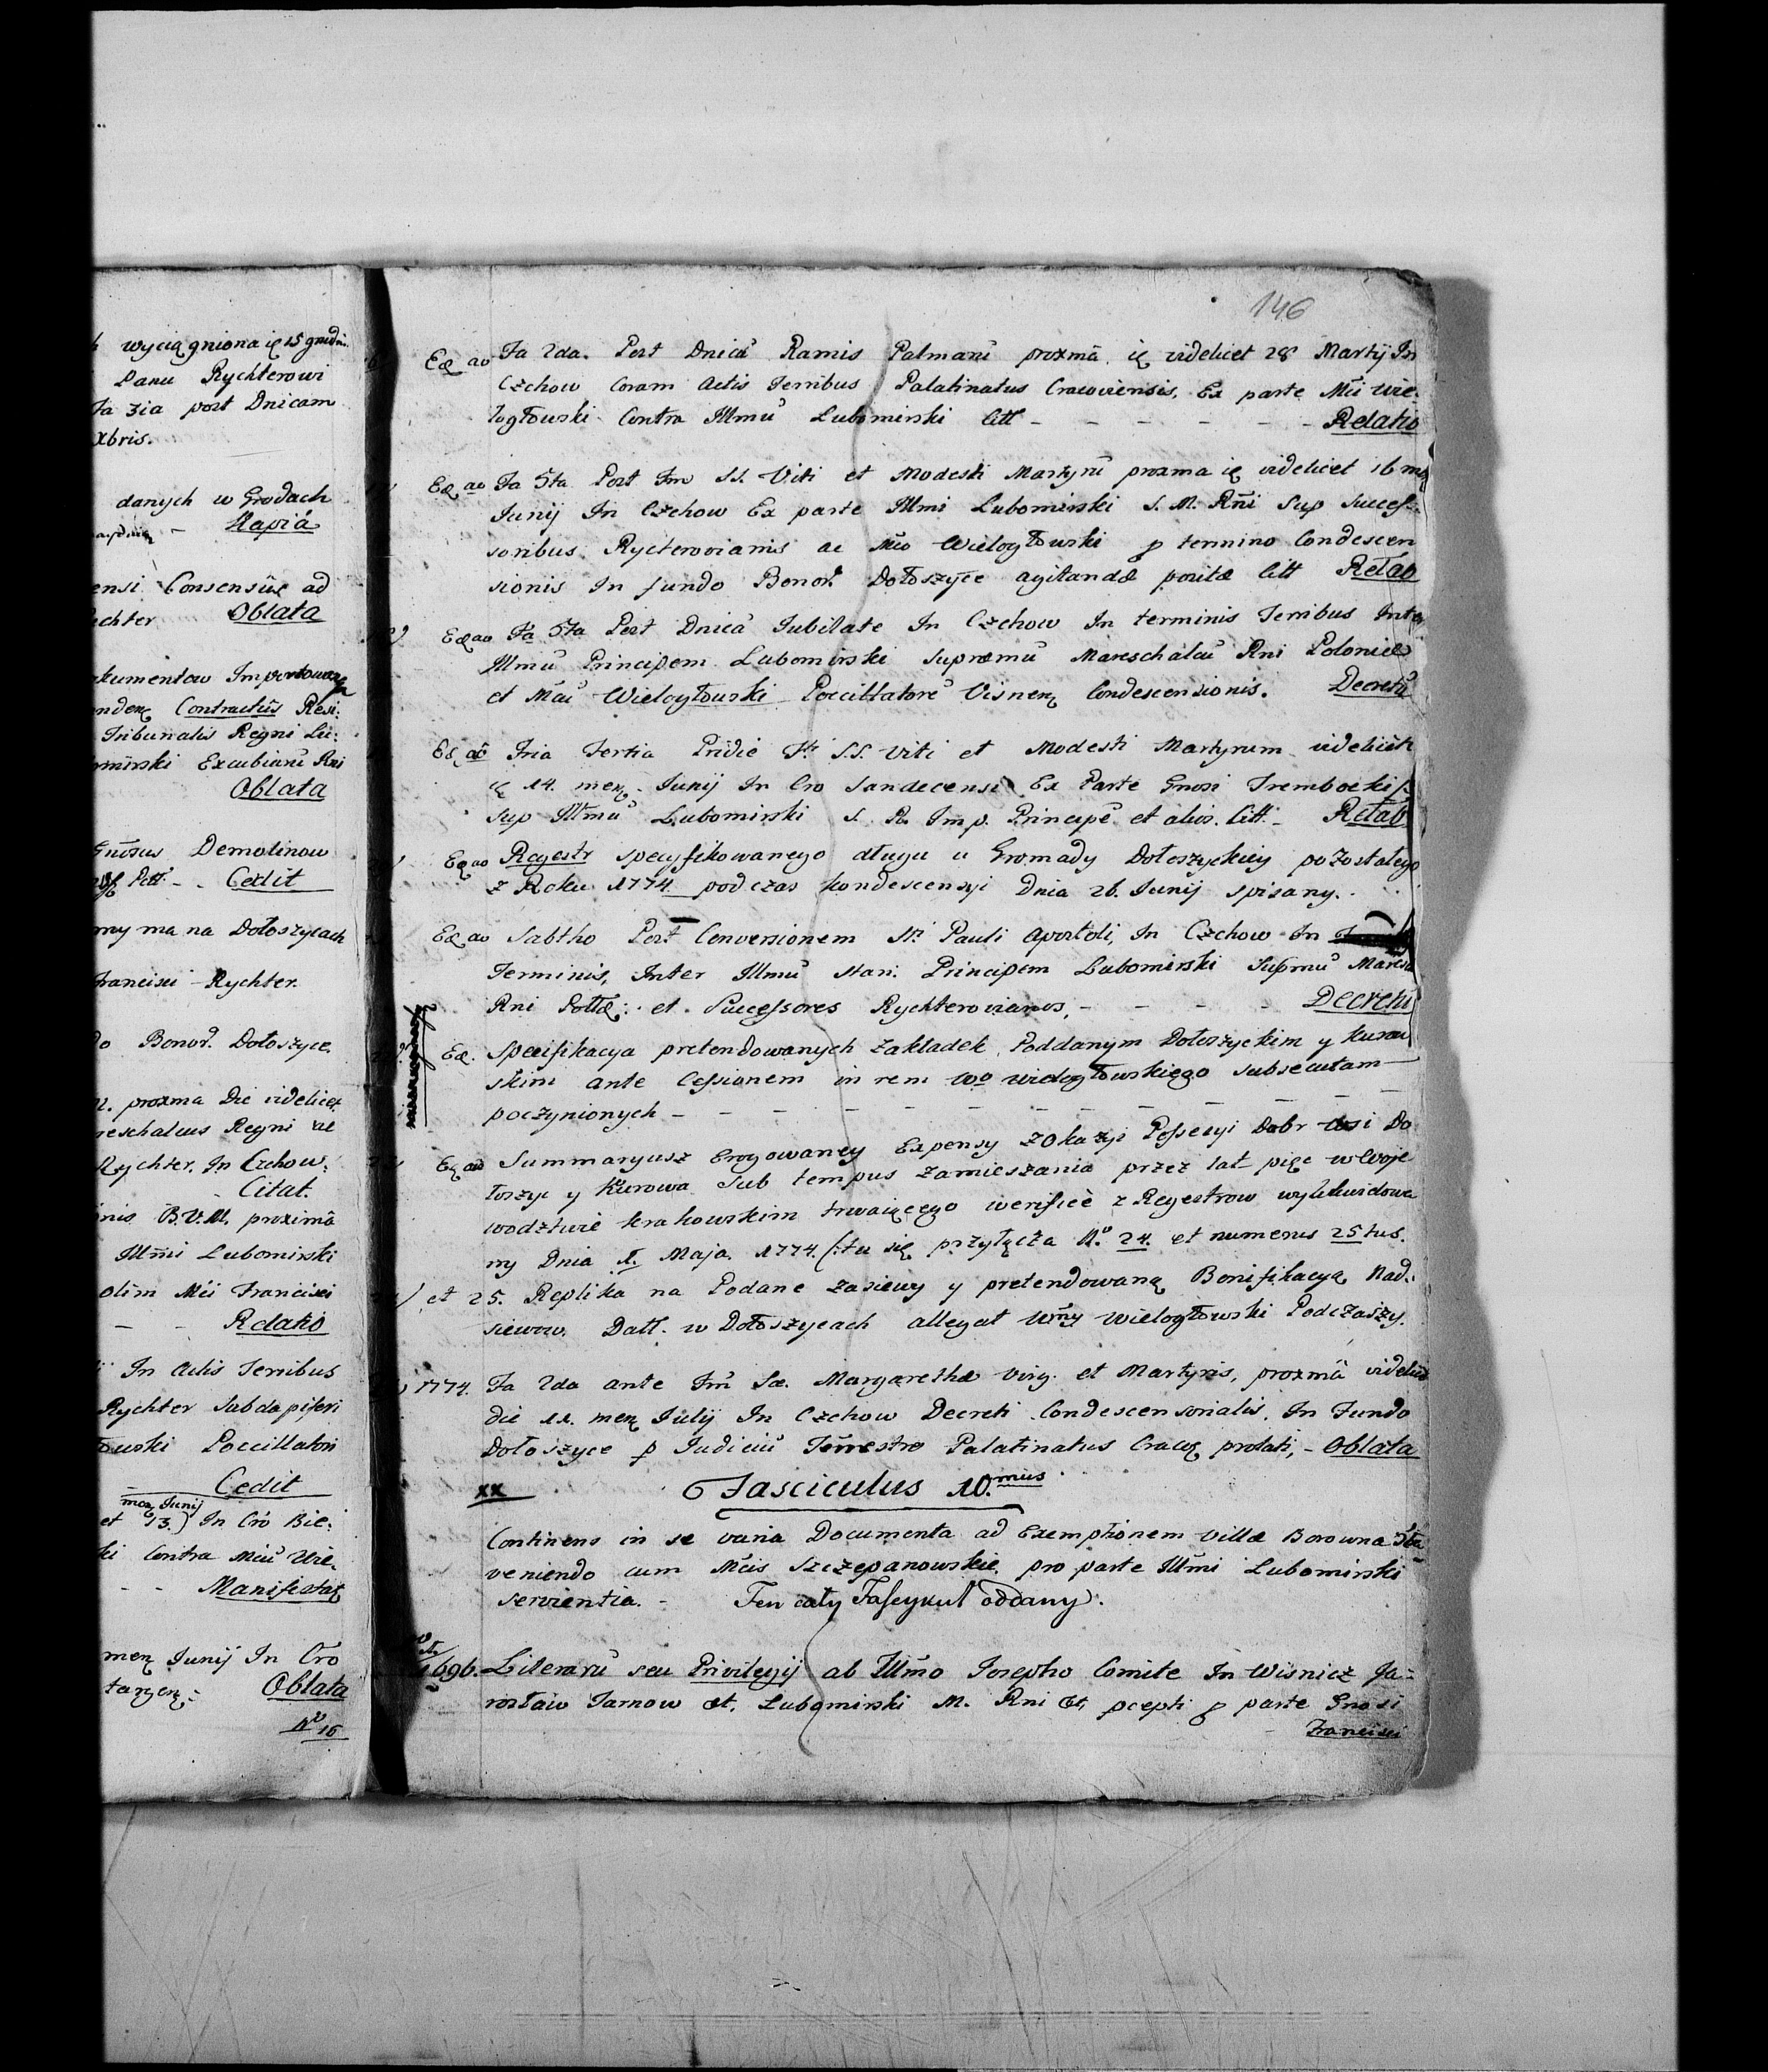 wyciągniona ię 15 grudn.
Panu Rychterowi
Fa 3ia post Dnicam
Xbris.
danych w Grodach
Kapiá
ensi Consensûs ad
chter Oblata
kumentow Importowa
Contractûs Resi:
Tribunalis Regni Lu:
omirski Excubiarũ Rni
Oblata
Gnĩsus Demolinow
Cedit
my ma na Dołoszycach
Francisci Rychter.
Bonor. Dołoszyce.
proxma Die videlicet
reschalcus Regni ac
Rychter. In Czchow.
Citat.
B.V.M. proximâ
Illmi Lubomirski
olim Mci Francisci
Relatio
In Actis Terribus
Rychter Subdapiferi
towski Poccillatori
Cedit
menq Junij
et 13.) In Crô Bie:
ki Contra Mcũ Wie,
Manifestatq
menq Junij In Crô
Oblata
No 16
146
Eq ao Fa 2da. Post Dnicã Ramis Palmarũ proxmã ię videlicet 28 Martij In
Czchow Coram Actis Terribus Palatinatus Cracoviensis, Ex parte Mci Wie,
logłowski Contra Illmũ Lubomirski Citt - - - - - - Relatio
Eq ao Fa 5ta Post Fm SS. Viti et Modesti Martyrũ proxma ię videlicet 16 mq
Junij In Czchow Ex parte Illmi Lubomirski S. M. Rñi Sup Succes.
soribus Rycterovianis ac Mco Wielogłowski p termino Condescen
sionis In fundo Bonor. Dołoszyce agitandæ positæ Citt Relao
Eq ao Fa 5ta Post Dnicã Jubilate In Czchow In terminis Terribus Inter
Illmũ Principem Lubomirski Supremũ Mareschalcũ Rni Poloniæ
et Mcũ Wielogłowski Poccillatorẽ Visnenq Condescensionis. Decretũ
Eq ao Fria Tertia Pridiè Fti S.S. Viti et Modesti Martyrum videlicèt
ię 14. menq. Junij In Cro Sandecensi Ex Parte Gnosi Trembecki
Sup Illmũ Lubomirski S. R. Imp. Principẽ et alios. Citt. - Relao
Eq ao Regestr specyfikowanego długu u Gromady Dołoszyckiey pozostałego
z Roku 1774 podczas kondescensyi Dnia 26. Junij spisany.
Eq ao Sabtho Post Conversionem Sti Pauli Apostoli, In Czchow In
Terminis, Inter Illmũ Principem Lubomirski Supmũ Maresc
Rni Pollæ: et Successores Rychterovianos, - - - - Decretũ
Eq. Specifikacya pretendowanych zakładek Poddanym Dołoszyckim y kurow
skim ante Cessionem in rem Wo Wielogłowskiego subsecutam
poczynionych - - - - - - - - - - - -
Eq ao Summaryusz Erogowaney Expensy z Okazyi Possesyi Dobr wsi Do
łoszyc y Kurowa sub tempus zamieszania przez lat pięc w Woje
wodztwie krakowskim trwaiącego werificè z Regestrow wylikwidowa
ny Dnia 1. Maja 1774. (: tu się przyłącza No. 24. et numerus 25tus.
et 25. Replika na Podane zasiewy y pretendowaną Bonifikacyą Nad.
siewow. Datt. w Dołoszycach allegat Wmy Wielogłowski Podczaszy.
1774. Fa 2da ante Fm Sæ. Margarethæ Virg. et Martyris, proxmâ videlict
die 11. menq Julij In Czchow Decreti Condescensorialis, In Fundo
Dołoszyce p Judiciũ Terrestre Palatinatus Cracq prolati, - Oblata
xx Fasciculus 10.mus
Continens in se varia Documenta ad Exemptionem Villæ Borowna
veniendo cum Mcis Szczepanowskie pro parte Illmi Lubomirski
servientia. - Ten cały Fascykuł oddany.
1696. Literarũ seu Privilegij ab Illmo Josepho Comite In Wisnicz Ja-
rosław Tarnow et. Lubomirski M. Rni et, pcepti p parte Gnosi
Francisci